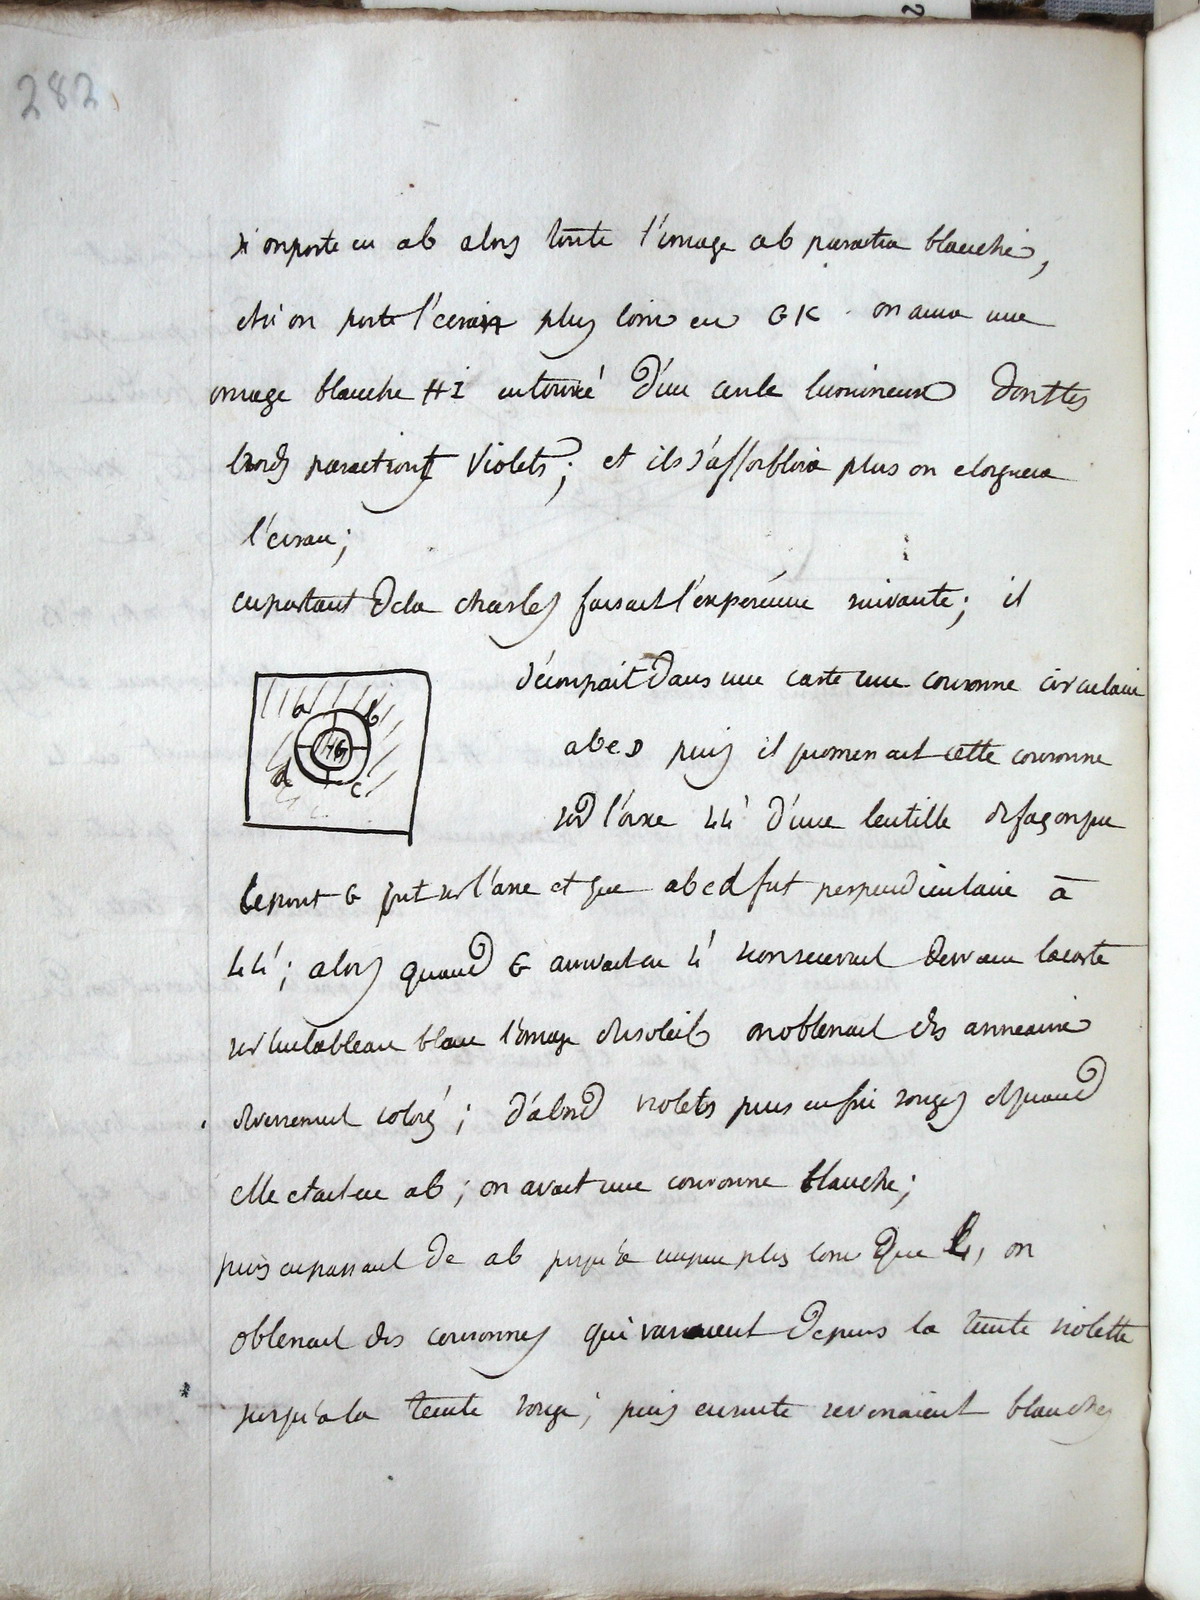 282
si on porte en ab alors toute l'image ab paraitra blanche,
et si on porte l'ecran plus loin en GK on aura une
image blanche HI entouré d'un cercle lumineux dont les
bords paraitront violets; et ils s'affoiblira plus on eloignera
l'ecran;
en partant dela charles faisait l'experience suivante; il
découpait dans une carte une couronne circulaire
abcd puis il promenait cette couronne
sur l'axe LL' d'une lentille de façon que
le point G fut sur l'axe et que abcd fut perpendiculaire à
LL'; alors quand G arrivait en L' si on recevait derriere la carte
sur un tableau blanc l'image du soleil on obtenait des anneaux
diversement coloré; d'abord violets puis enfin rouges et quand
elle etait en ab; on avait une couronne blanche;
puis en passant de ab jusqu'à un peu plus loin que L, on
obtenait des couronnes qui variaient depuis la teinte violette
jusqu'a la teinte rouge; puis ensuite revenaient blanches
a b
HG
d c